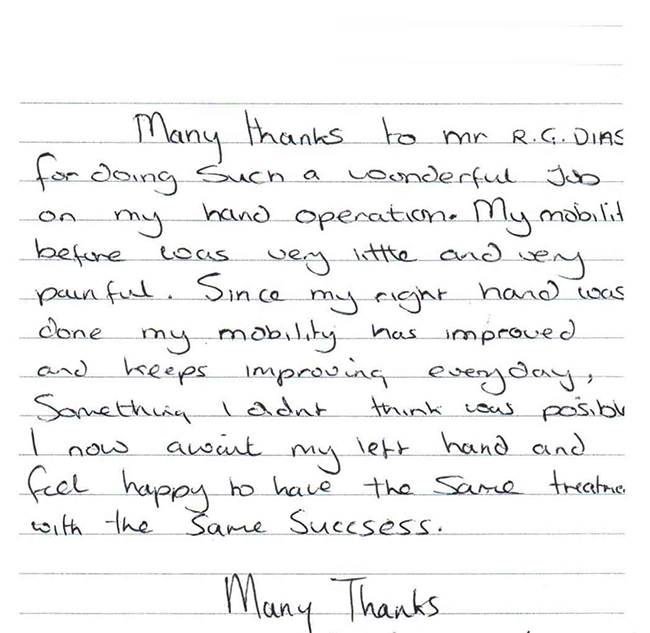 Many thanks to mr R.G. DIAS
for doing Such a woonderful Job
on my hand operation. My mobilit
before was very little and very
painful. Since my right hand was
done my mobility has improved
and keeps improving everyday,
Something I didnt think was posibl
I now await my left hand and
feel happy to have the Same treatme
with the Same Succsess.
Many Thanks